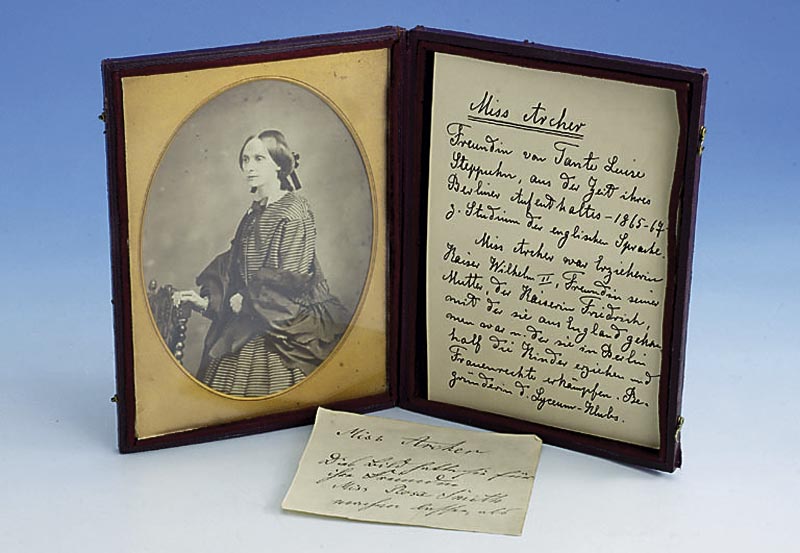 Miss Archer
Freundin von Tante Luise
Steppuhn, aus der Zeit ihres
Berliner Aufenthaltes - 1865-67
z. Studium der englischen Sprache.
Miss Archer war Erzieherin
Kaiser Wilhelm II, Freundin seiner
Mutter, der Kaiserin Friedrich,
mit der sie aus England gekom
men war u der sie in Berlin
half die Kinder erziehen und
Frauenrechte erkämpfen. Be-
gründerin d. Lyceum-Klubs.
Miss Archer
Das Bild hatte sie für
ihre Freundin
Miss Rose Smith
machen lassen, als